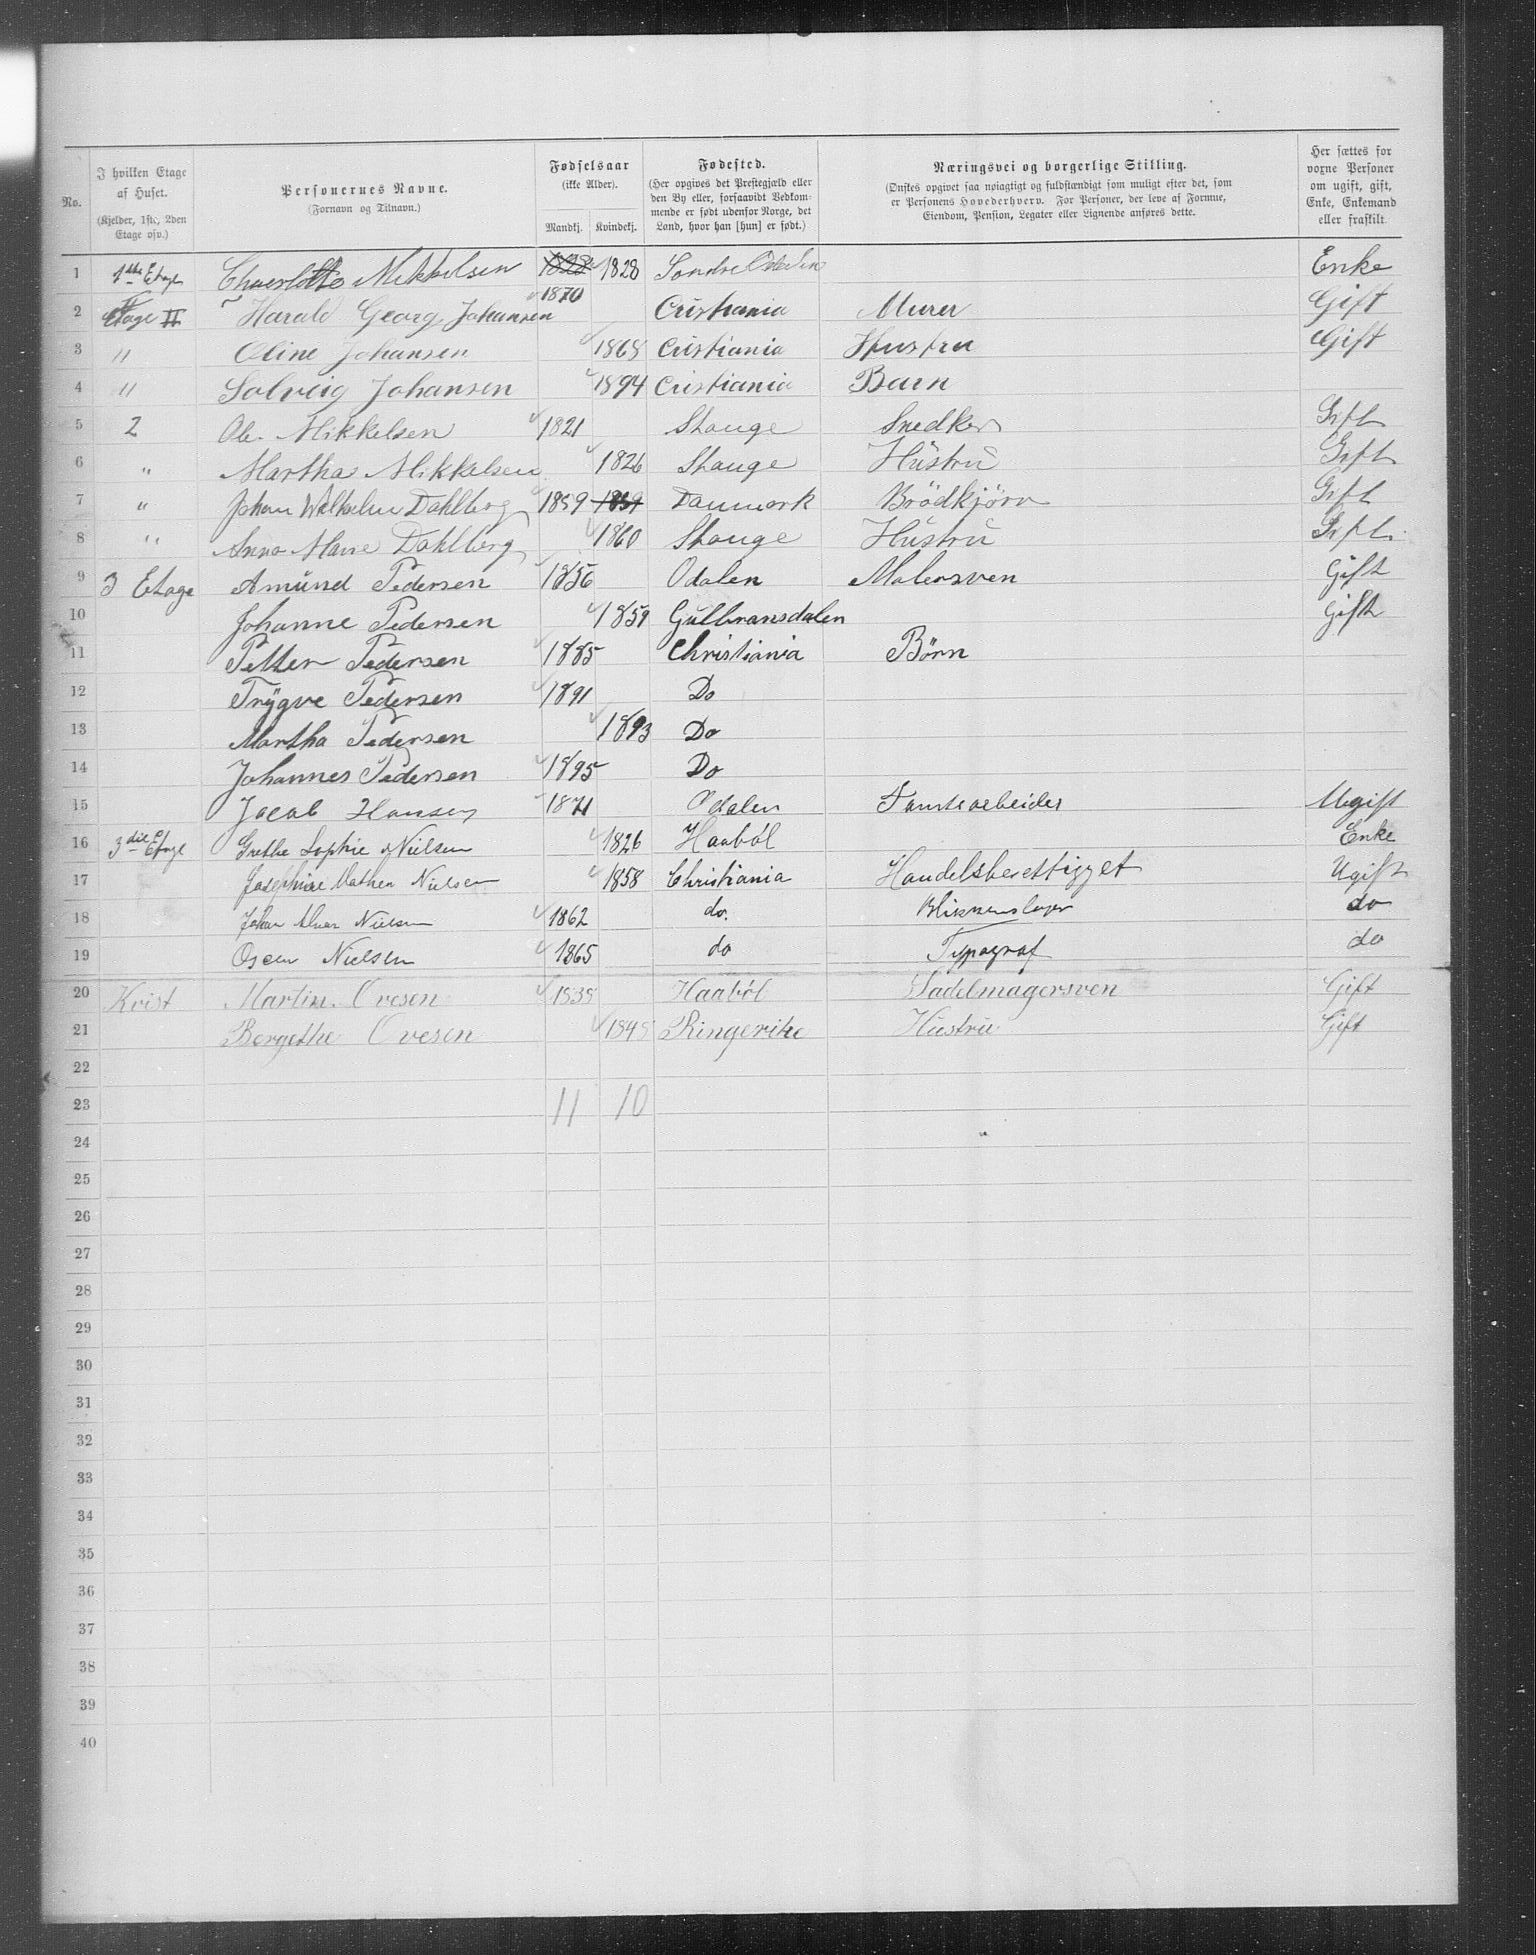 No. | I hvilken Etage af Huset. (Kjelder, 1ste, 2den Etage osv.) | Personernes Navne. (Fornavn og Tilnavn.) | Fødselsaar (ikke Alder). Mandkj. | Kvindekj. | Fødested. (Her opgives det Prestegjæld eller den By eller, forsaavidt Vedkommende er født udenfor Norge, det Land, hvor han [hun] er født.) | Næringsvei og borgerlige Stilling. (Ønskes opgivet saa nøiagtigt og fuldstændigt som muligt efter det, som er Personens Hovederhverv. For Personer, der leve af Formue, Eiendom, Pension, Legater eller Lignende anføres dette. | Her sættes for voxne Personer om ugift, gift, Enke, Enkemand eller fraskilt.
1 1ste Etage Charlotte Mikkelsen 1828 1828 Søndre Odalen Enke
2 Etage II Harald Georg Johansen 1870 Cristiania Murer Gift
3 " Oline Johansen 1868 Cristiania Hustru Gift
4 " Solveig Johansen 1894 Cristiania Barn
5 2 Ole Mikkelsen 1821 Stange Snedker Gift
6 " Martha Mikkelsen 1826 Stange Hústrú Gift
7 " Johan Wilhelm Dahlberg 1859 1859 Danmark Brödkjörer Gift
8 " Anna Marie Dahlberg 1860 Stange Hústrú Gift
9 3 Etage Amúnd Pedersen 1856 Odalen Malersven Gift
10 Johanne Pedersen 1859 Gulbransdalen Gift
11 Petter Pedersen 1885 Christiania Børn
12 Trygve Pedersen 1891 Do
13 Martha Pedersen 1893 Do
14 Johannes Pedersen 1895 Do
15 Jacob Hansen 1871 Odalen Tomtearbeider Ugift
16 3die Etage Grethe Sophie Nielsen 1826 Haaböl Enke
17 Josephine Nielsen 1858 Christiania Handelsberettigget Ugift
18 Johan Alvar Nielsen 1862 do. Blikkenslager do
19 Oscar Nielsen 1865 do Typograf do
20 Kvist Martin Ovesen 1839 Haaböl Sadelmagersven Gift
21 Bergethe Ovesen 1848 Ringerike Hústrú Gift
22
23 11 10
24
25
26
27
28
29
30
31
32
33
34
35
36
37
38
39
40